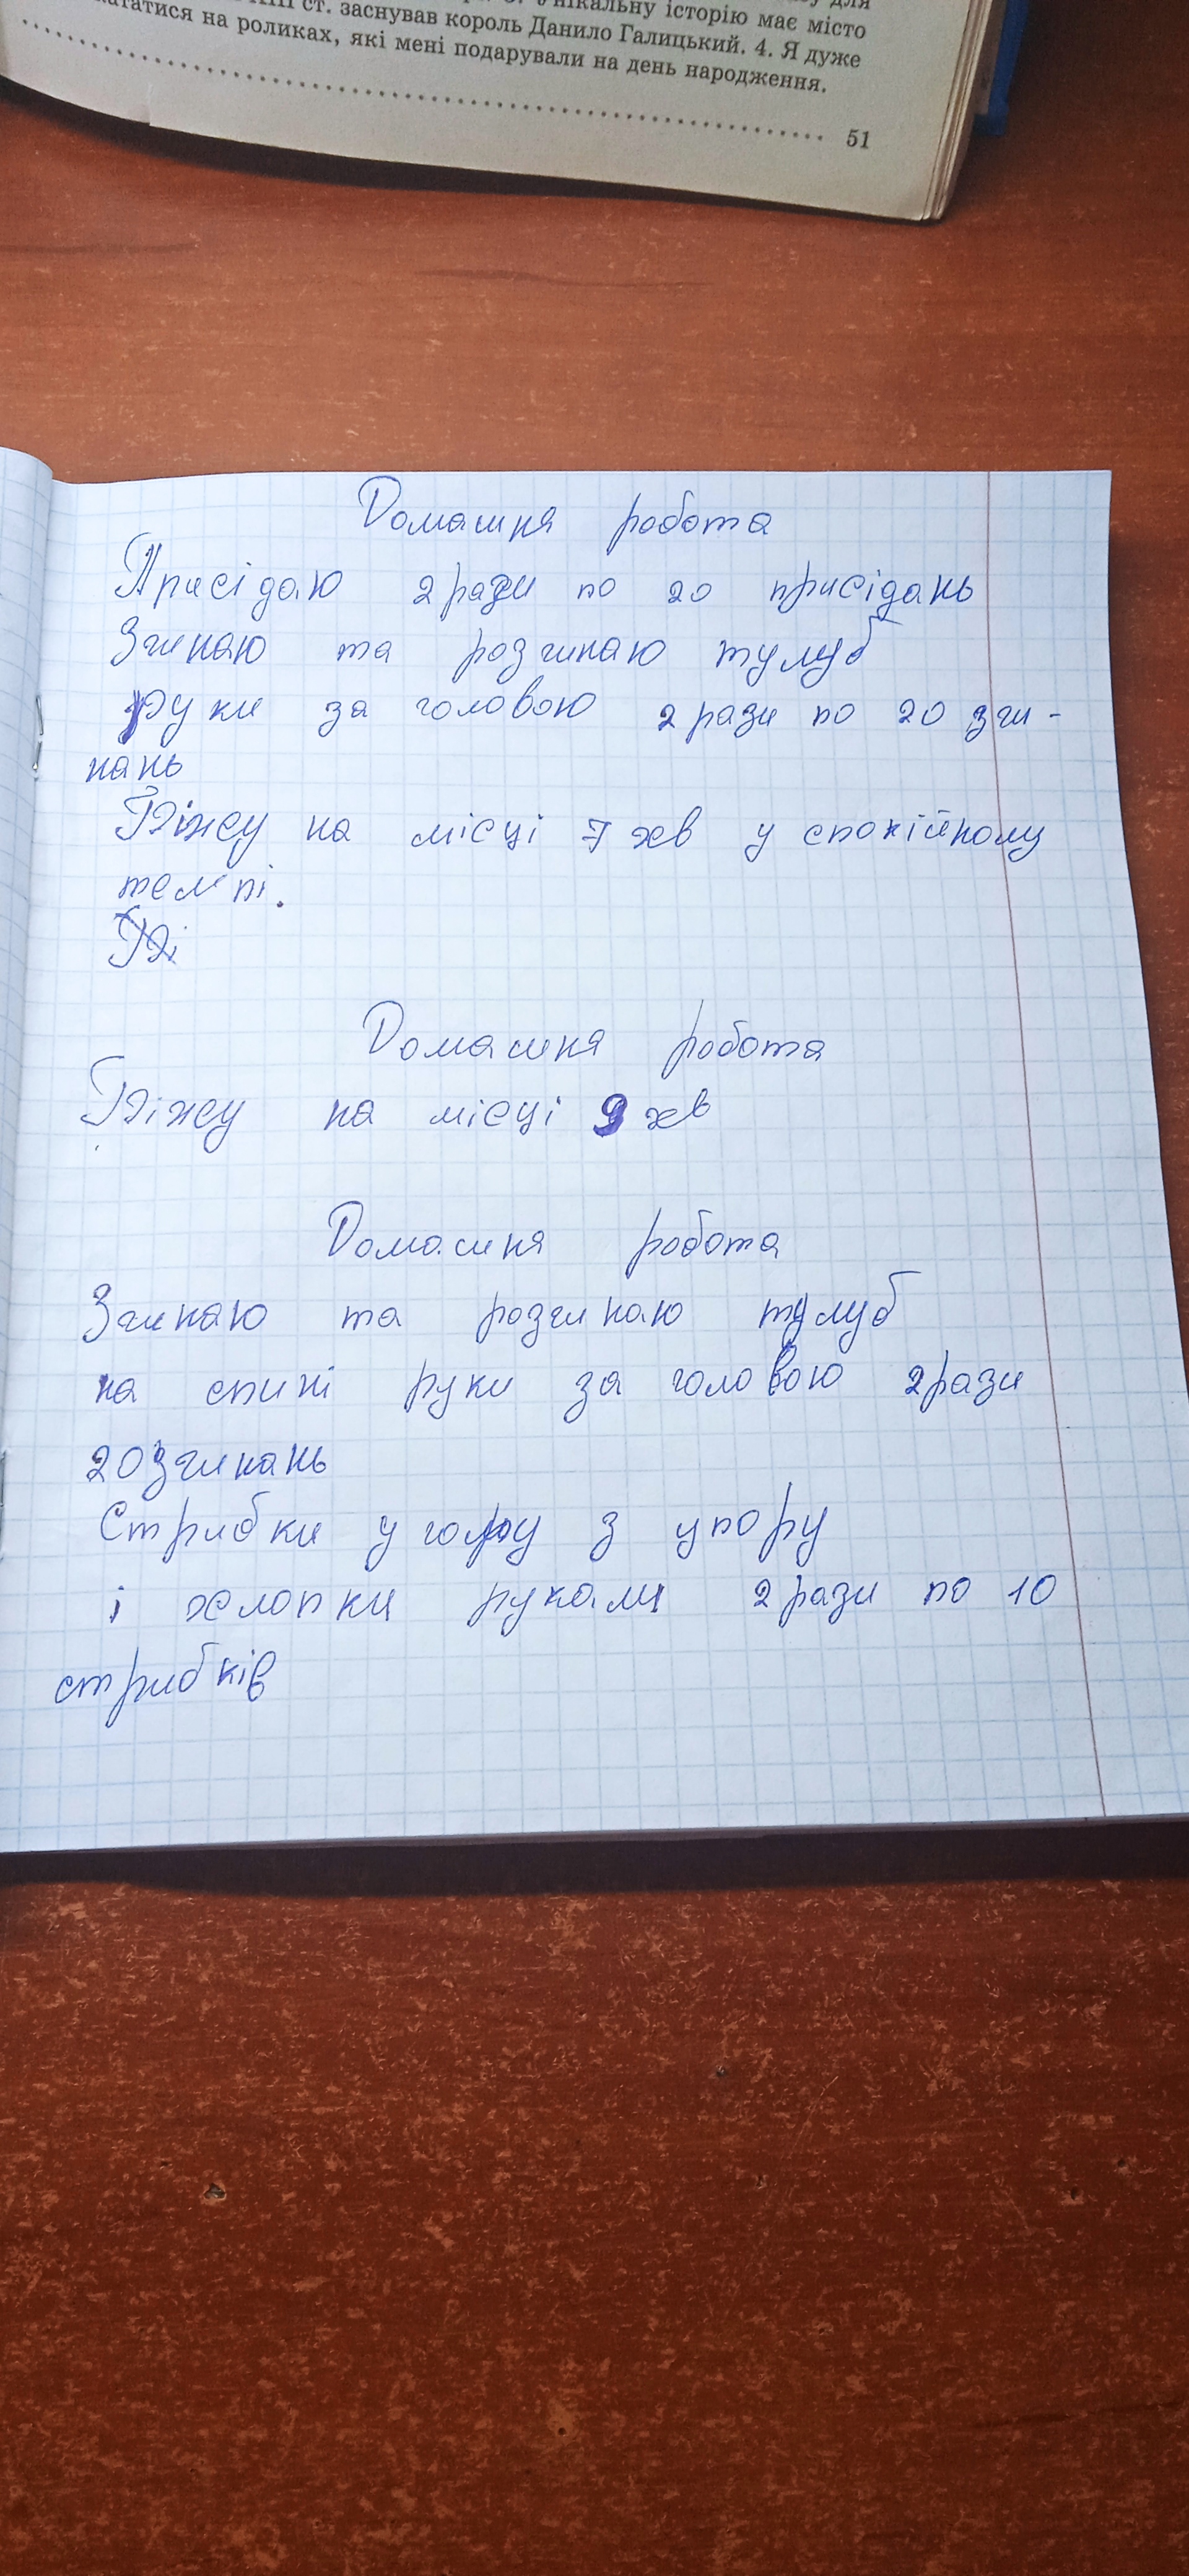 для
нікальну історію має місто
ст. заснував король Данило Галицький. 4. Я дуже
кататися на роликах, які мені подарували на день народження.
51
Домашня робота
Присідаю 2 рази по 20 присідань
Згинаю та розгинаю тулуб
руки за головою 2 рази по 20 зги-
нань
Біжу на місці 7 хв у спокійному
темпі.
Бі
Домашня робота
Біжу на місці 9 хв
Домашня робота
Згинаю та розгинаю тулуб
на спині руки за головою 2 рази
20 згинань
Стрибки у гору з упору
і хлопки руками 2 рази по 10
стрибків